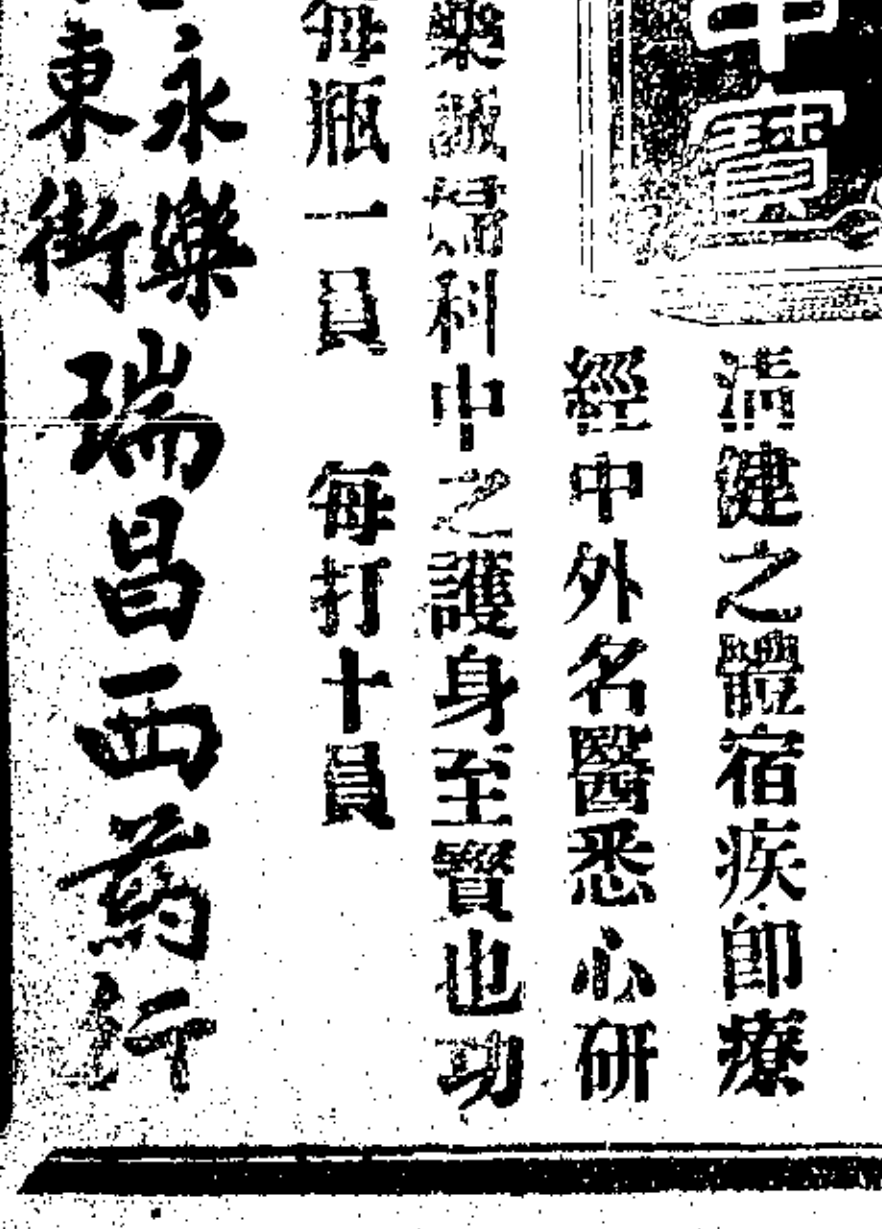 中寶
清健之體宿疾即療
經中外名醫悉心研
藥誠婦科中之護身至寶也功
每瓶一員　每打十員
永樂
東街
瑞昌西葯行